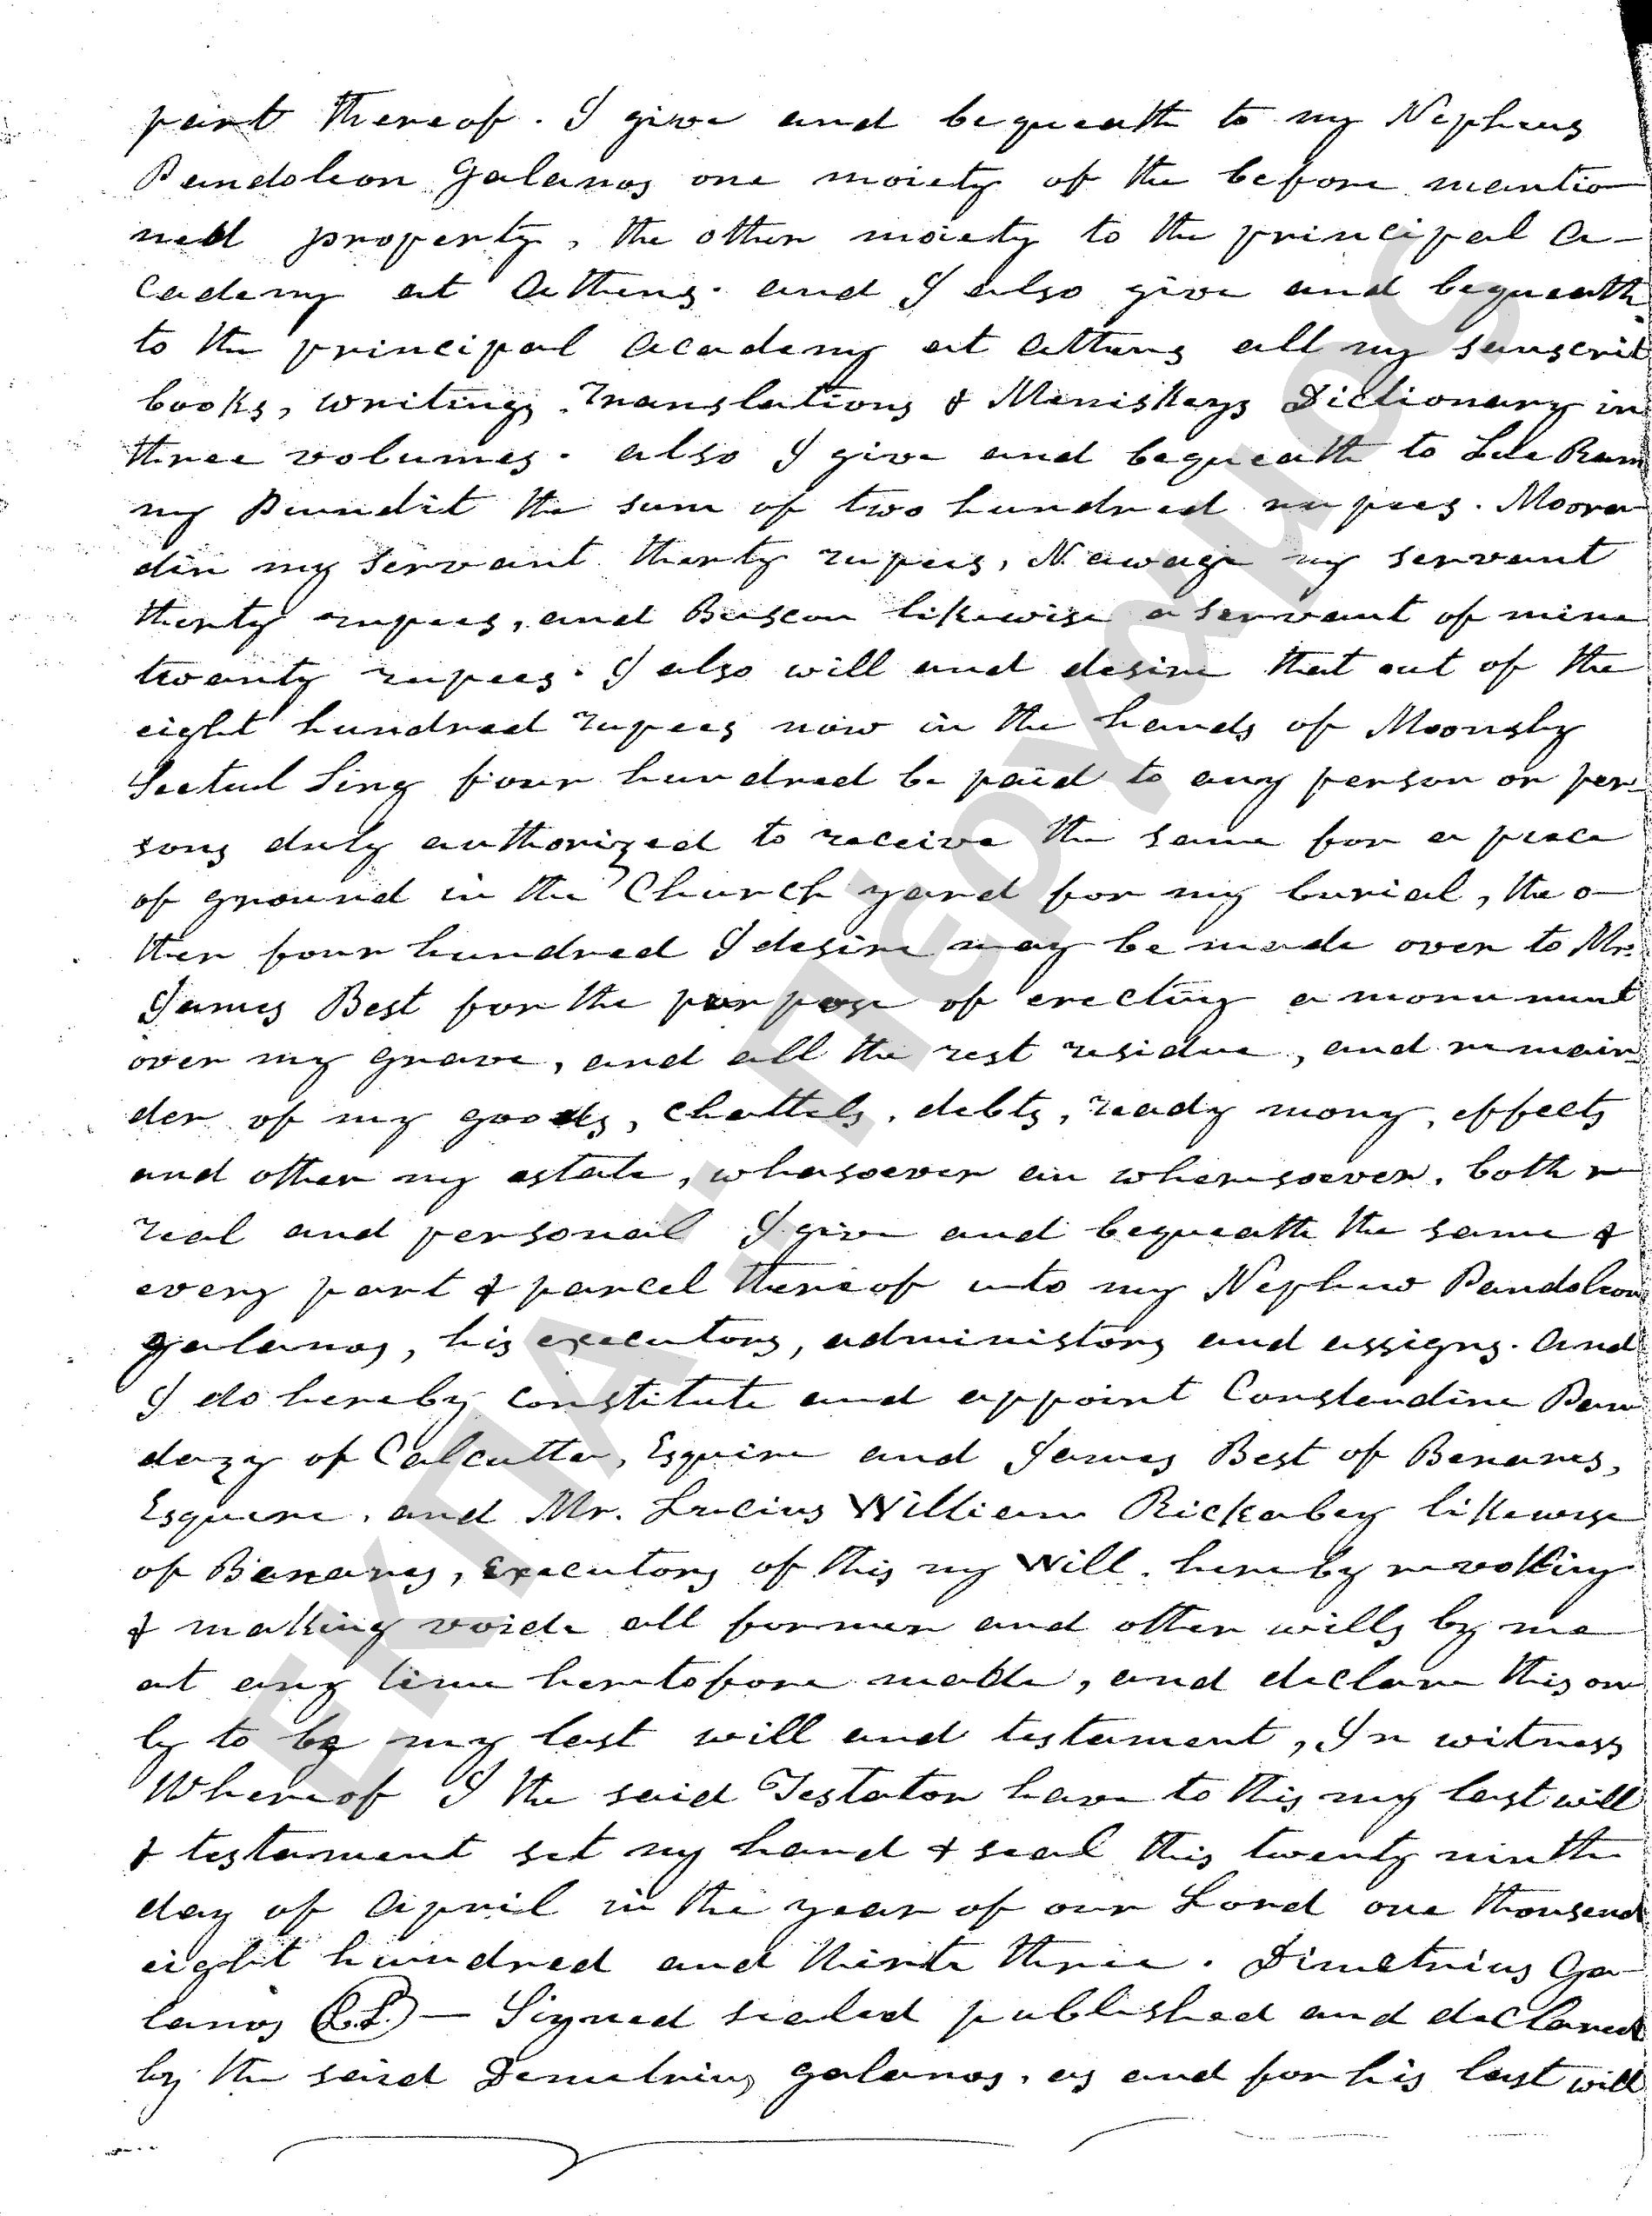 part thereof. I give and bequeath to my Nepheus
Pandoleon Galanos one moiety of the before mentio
ned property, the other moiety to the principal a-
cademy at Athens. and I also give and bequeath
to the principal Academy at Athens all my sanscrit
books, writings, Translations & Meniskeys Dictionary in
three volumes. also I give and bequeath to Lila Ram
my Pundit the sum of two hundred rupees. Moora
din my servant therty rupees, Newage my servant
therty rupees, and Buscou likewise a servant of mine
twenty rupees. I also will and desire that out of the
eight hundred rupees now in the hands of Moonshy
Seetul Sing four hundred be paid to any person or per
sons duly authorized to receive the same for a peace
of ground in the Church yard for my burial, the o-
ther four hundred I desire may be made over to Mr.
James Best for the purpose of erecting a monument
over my grave, and all the rest residue, and remain
der of my goods, chattels, debts, ready mony, effects
and other my estate, whasoever an wheresoever, both r
real and personal I give and bequeath the same &
every part & parcel thereof unto my Nephew Pandoleon
galanos, his executors, administors and assigns. And
I do hereby constitute and appoint Constandine Pan
dazy of Calcutta, Esquire and James Best of Benares,
Esquere, and Mr. Lucius William Rickabey likewise
of Benares, Executors of this my Will, hereby revokking
& making voide all former and other wills by me
at any time heretofore made, and declare this on
ly to be my last will and testament, In witness
Whereof I the said Testator have to this my last will
& testament set my hand & seal this twenty ninth
day of April in the year of our Lord one thousend
eight hundred and thirte three. Dimetrius Ga-
lanos (L.S.) — Signed sealed published and declared
by the said Demetrius galanos, as and for his last will
ΕΚΠΑ - Πέργαμος